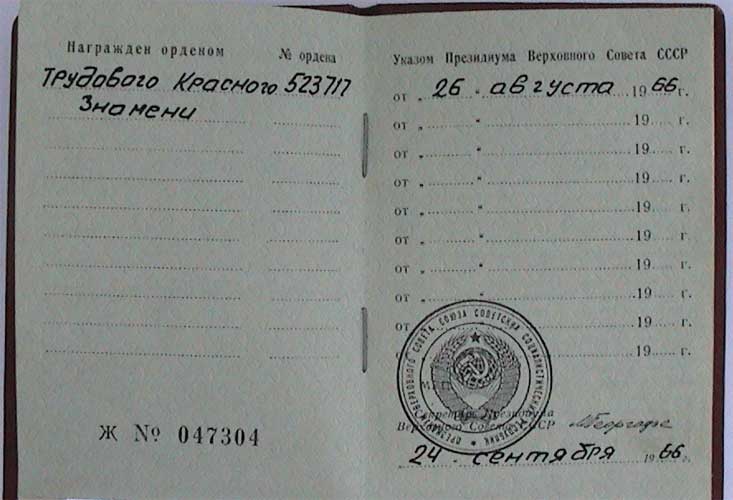 Награжден орденом
№ ордена
Трудового Красного 523717
Знамени
Ж № 047304
Указом Президиума Верховного Совета СССР
от „ 26 “ августа 19 66 г.
от „ “ 19 г.
от „ “ 19 г.
от „ “ 19 г.
от „ “ 19 г.
от „ “ 19 г.
от „ “ 19 г.
от „ “ 19 г.
от „ “ 19 г.
от „ “ 19 г.
ПРЕЗИДИУМ ВЕРХОВНОГО СОВЕТА СОЮЗА СОВЕТСКИХ СОЦИАЛИСТИЧЕСКИХ РЕСПУБЛИК
Секретарь Президиума
Верховного Совета СССР
24 сентября 1966